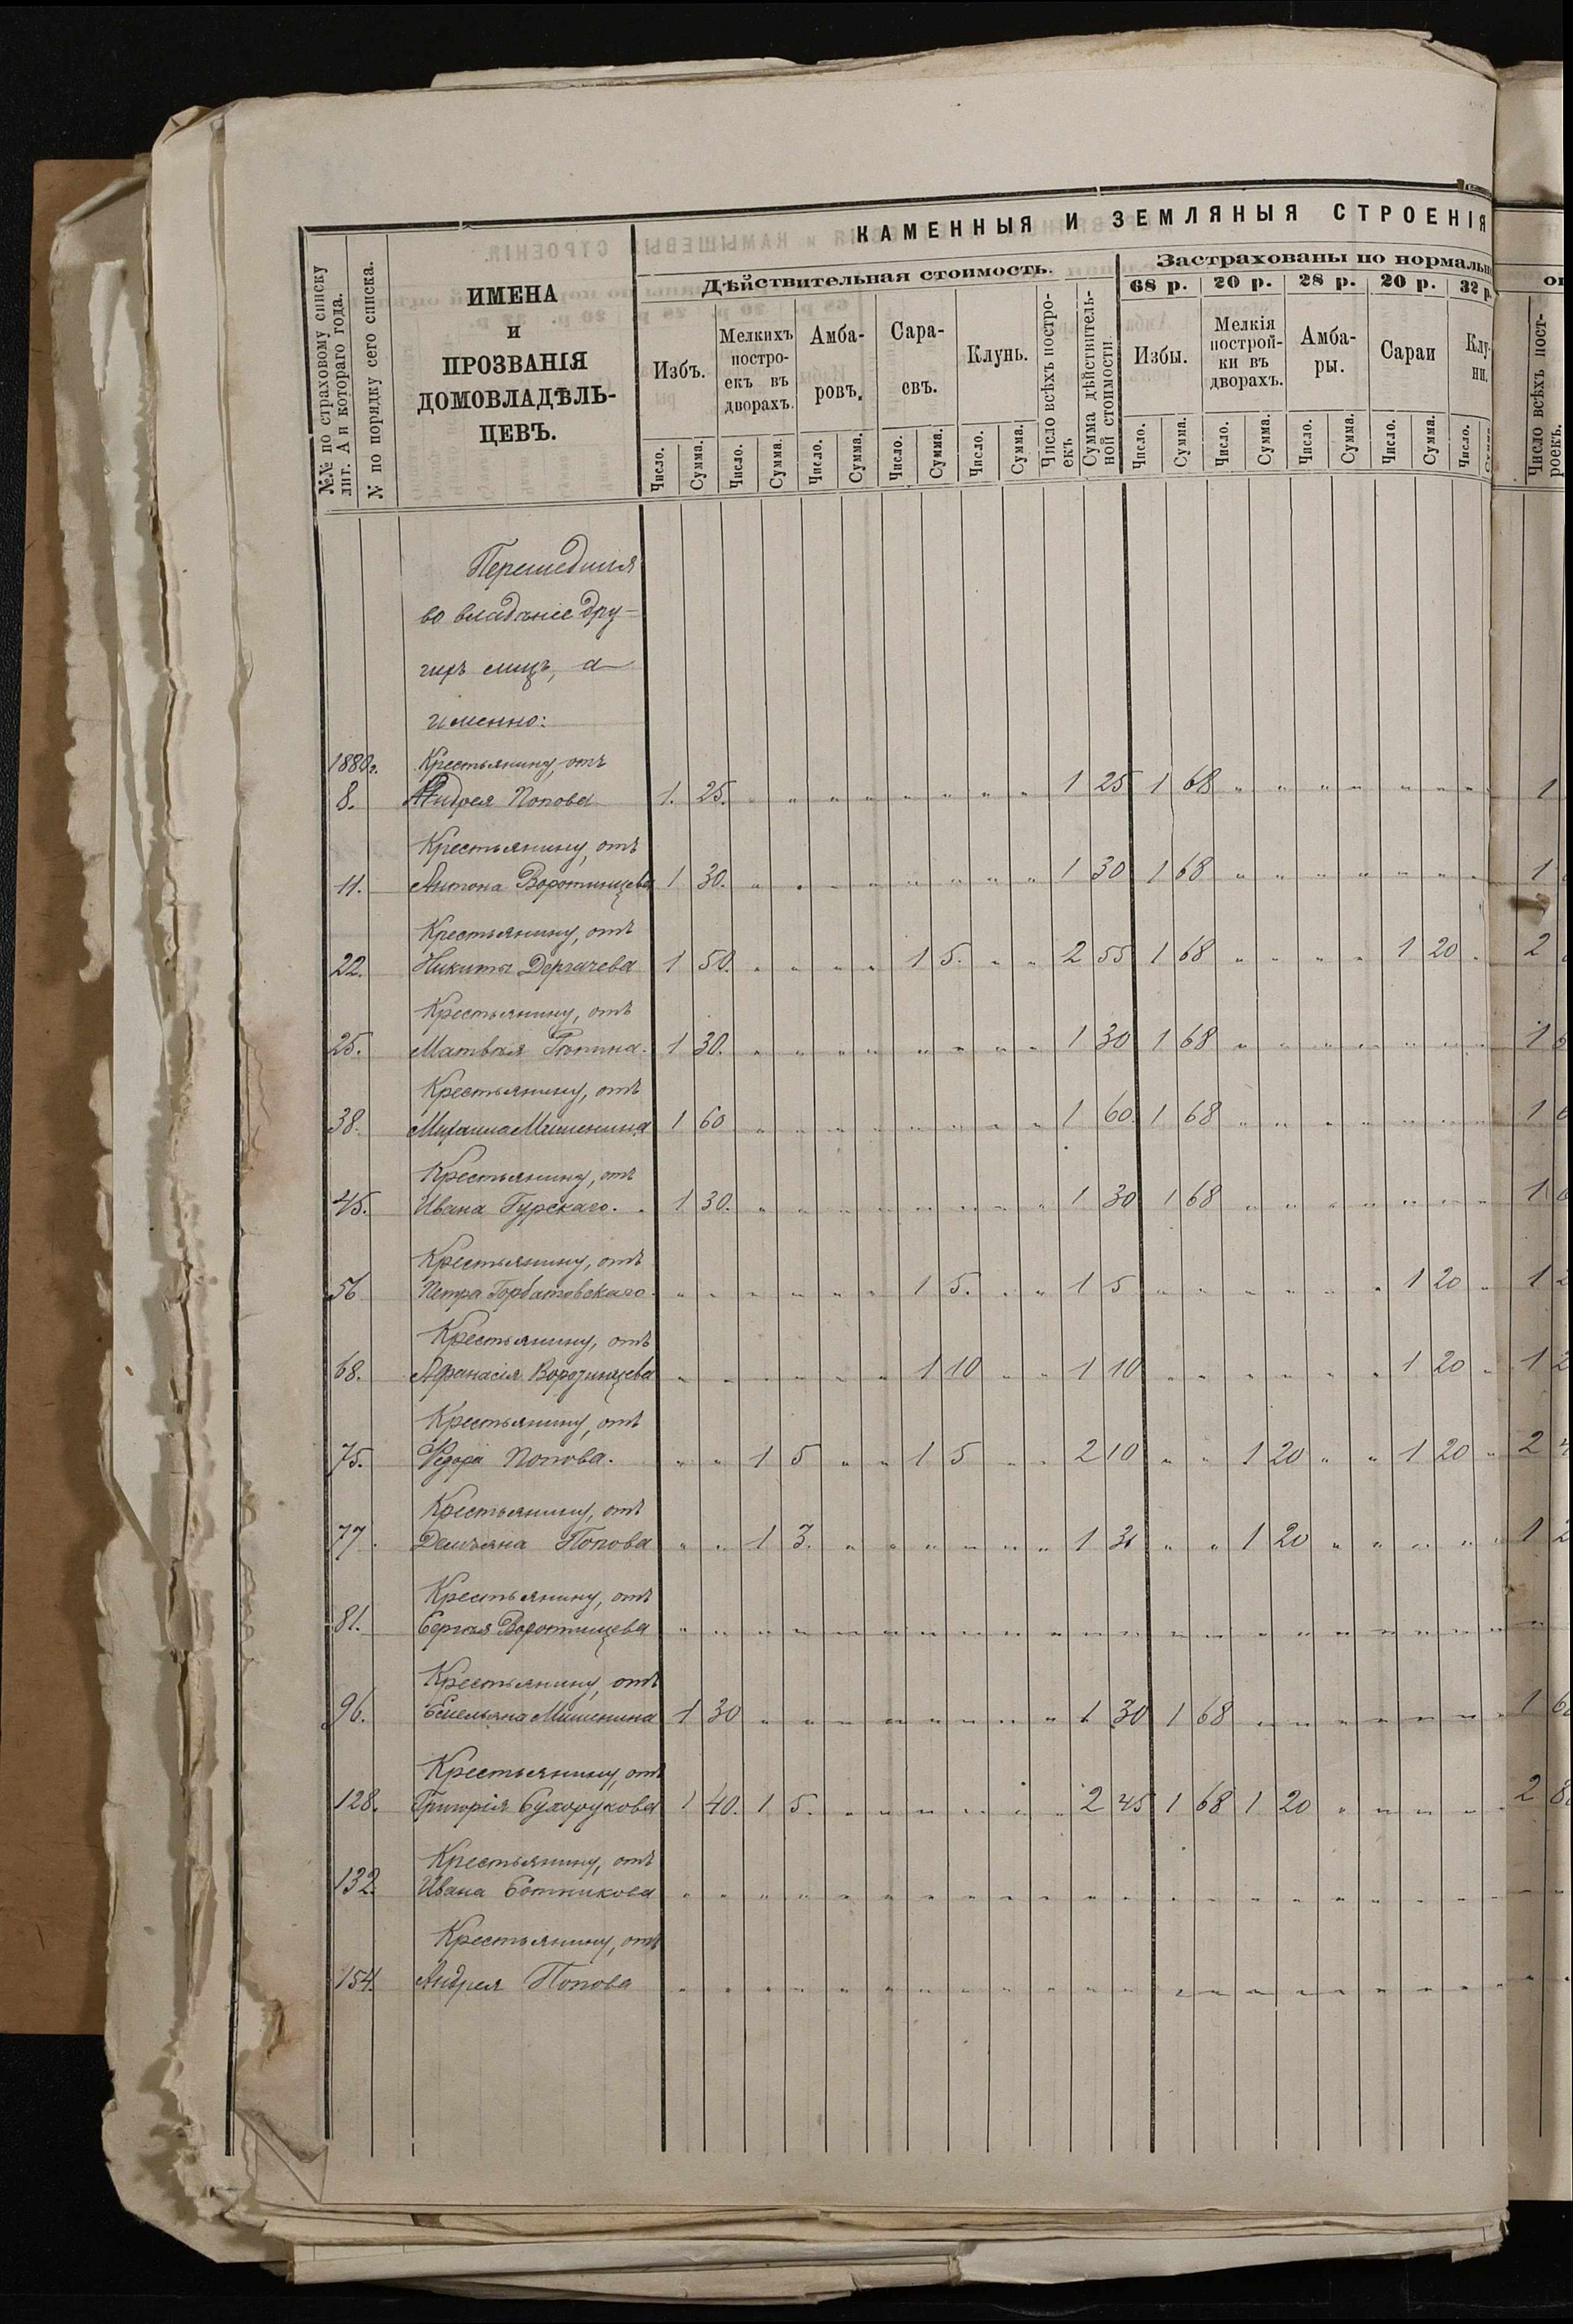 КАМЕННЫЯ И ЗЕМЛЯНЫЯ СТРОЕНІЯ
№№ по страховому списку лит. А и котораго года.
№ по порядку сего списка.
ИМЕНА
и
ПРОЗВАНІЯ
ДОМОВЛАДѢЛЬ-
ЦЕВЪ.
Дѣйствительная стоимость.
Избъ.
Мелкихъ
постро-
екъ въ
дворахъ.
Амба-
ровъ.
Сара-
евъ.
Клунь.
Число всѣхъ постро-
екъ.
Сумма дѣйствитель-
ной стоимости.
Застрахованы по нормальн
68 р. 20 р. 28 р. 20 р. 32 р.
Избы.
Мелкія
построй-
ки въ
дворахъ.
Амба-
ры.
Сараи
Клу-
ни.
Число всѣхъ пост-
роекъ.
Число. Сумма. Число. Сумма. Число. Сумма. Число. Сумма. Число. Сумма. Число. Сумма. Число. Сумма. Число. Сумма. Число. Сумма. Число.
Перешедшія
во владѣніе дру-
гихъ лицъ, а
именно:
1880г. Крестьянину, отъ
8. Андрея Попова 1. 25. 1 25 1 68 1
Крестьянину, отъ
11. Антона Воротынцева 1 30. 1 30 1 68 1
Крестьянину, отъ
22. Никиты Дергачева 1 50. 1 5. 2 55 1 68 1 20 2
Крестьянину, отъ
25. Матвѣя 1 30. 1 30 1 68 1 6
Крестьянину, отъ
38. Михаила Мишенина 1 60 1 60. 1 68 1 6
Крестьянину, отъ
45. Ивана Гурскаго. 1 30. 1 30 1 68 1 6
Крестьянину, отъ
56 Петра Горбатовскаго 1 5. 1 5 1 20 1 2
Крестьянину, отъ
68. Афанасія Воротынцева 1 10 1 10 1 20 1 2
Крестьянину, отъ
75. Ѳедора Попова. 1 5 1 5 2 10 1 20 1 20 2 4
Крестьянину, отъ
77. Демьяна Попова 1 3. 1 3 1 20 1 2
Крестьянину, отъ
81. Сергѣя Воротынцева
Крестьянину, отъ
96. Емельяна Мишенина 1 30 1 30 1 68 1 6
Крестьянину, отъ
128. Григорія Сухорукова 1 40. 1 5. 2 45 1 68 1 20 2 8
Крестьянину, отъ
132. Ивана Сотникова
Крестьянину, отъ
154. Андрея Попова